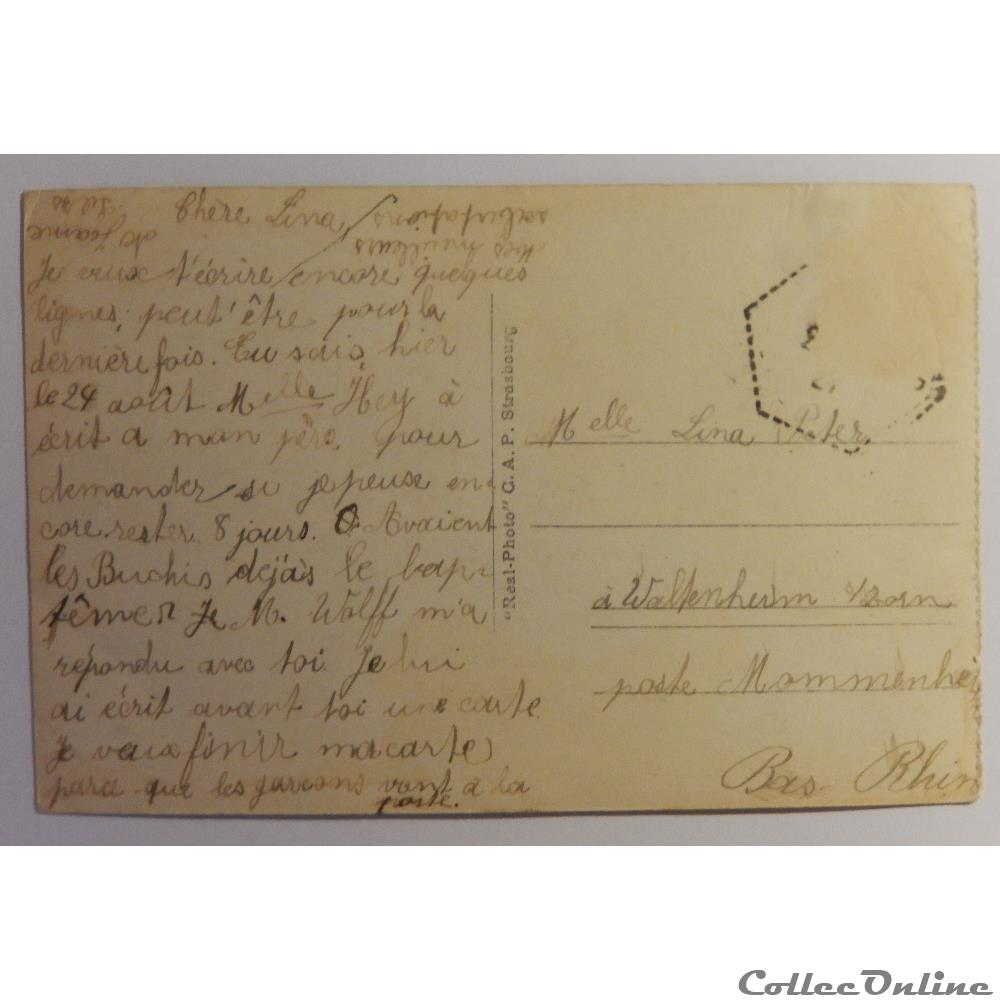 Chère Lina
Je veux t'écrire encore quelques
lignes, peut'être pour la
dernière fois. Tu sais, hier
le 24 août Melle Hey à
écrit a man père pour
demander si je peuse en-
core rester 8 jours. Avaient
les Buchis dejàs le bap-
tême? Je M. Wolff m'a
répondu avec toi. Je lui
ai écrit avant toi une carte.
Je veux finir ma carte
parce que les garcons vont a la
poste.
Mes meilleurs
salutations
de Jeanne
"Real-Photo" C. A. P. Strasbourg
Melle Lina Peter
à Waltenheim s/Zorn
poste Mommenhei
Bas Rhin
CollecOnline